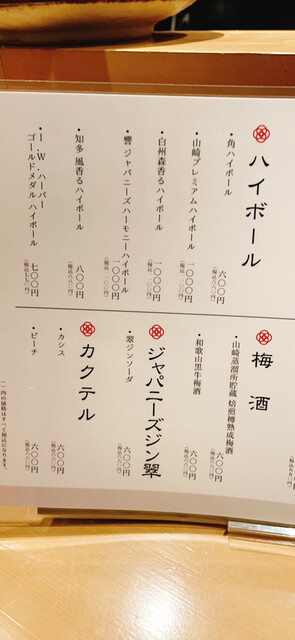 ハイボール
・角ハイボール
六〇〇円
(税込六六〇円)
・山崎プレミアムハイボール
一〇〇〇円
・白州森香るハイボール
一〇〇〇円
・響 ジャパニーズハーモニーハイボール
一〇〇〇円
・知多 風香るハイボール
八〇〇円
(税込八八〇円)
・I.W.ハーパー
ゴールドメダル ハイボール
七〇〇円
(税込七七〇円)
梅酒
・山崎蒸溜所貯蔵 焙煎樽熟成梅酒
・和歌山黒牛梅酒
六〇〇円
(税込六六〇円)
ジャパニーズジン翠
・翠ジンソーダ
六〇〇円
(税込六六〇円)
カクテル
・カシス
六〇〇円
(税込六六〇円)
・ピーチ
六〇〇円
(税込六六〇円)
( )内の価格はすべて税込になります。